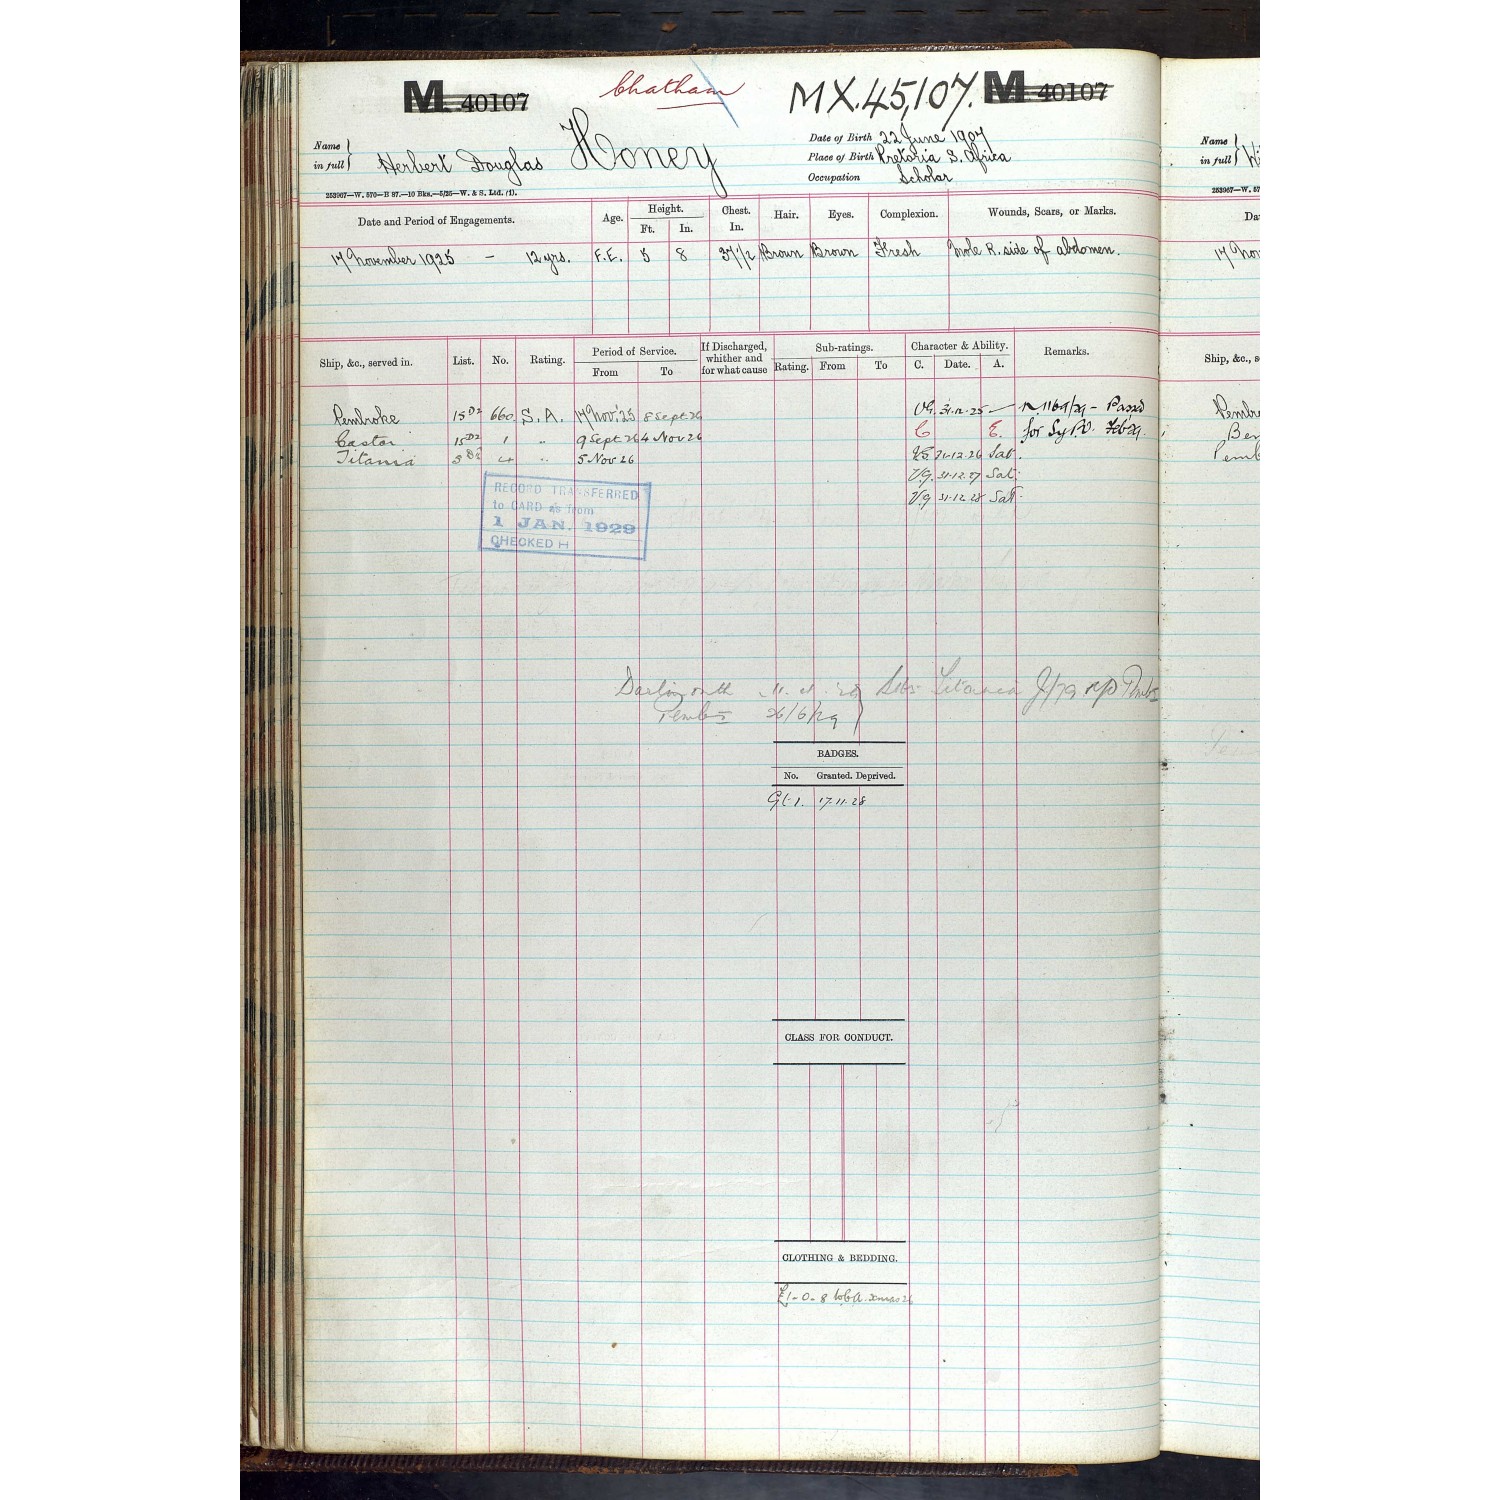 M. 40107 Chatham MX.45,107. M 40107
Name in full } Herbert Douglas Honey
Date of Birth 22 June 1907
Place of Birth Pretoria S. Africa
Occupation Scholar
253967—W. 570—B 87.—10 Bks.—5/25—W. & S. Ltd. (1).
Date and Period of Engagements. Age. Height. Ft. In. Chest. In. Hair. Eyes. Complexion. Wounds, Scars, or Marks.
17 November 1925 – 12 yrs. F.E. 5 8 37 1/2 Brown Brown Fresh Mole R. side of abdomen.
Ship, &c., served in. List. No. Rating. Period of Service. From To If Discharged, whither and for what cause Sub-ratings. Rating. From To Character & Ability. C. Date. A. Remarks.
Pembroke 15D2 660 S.A. 17 Nov. 25 8 Sept. 26 VG. 31.12.25 — Passd
Castor 15D2 1 " 9 Sept 26 4 Nov 26 C E. for Sy P.O. Feb 29.
Titania 4 " 5 Nov 26 VG 31-12-26 Sat.
V.g. 31.12.27 Sat.
V.g 31.12.28 Sat.
RECORD TRANSFERRED
to CARD as from
1 JAN. 1929
CHECKED H
Titania
26/6/29
BADGES.
No. Granted. Deprived.
Gt-1. 17.11.28
CLASS FOR CONDUCT.
CLOTHING & BEDDING.
£1-0-8
Name in full }
253967—W. 57
17 Nov
Ship, &c., s
Pembr
Ben
Pemb